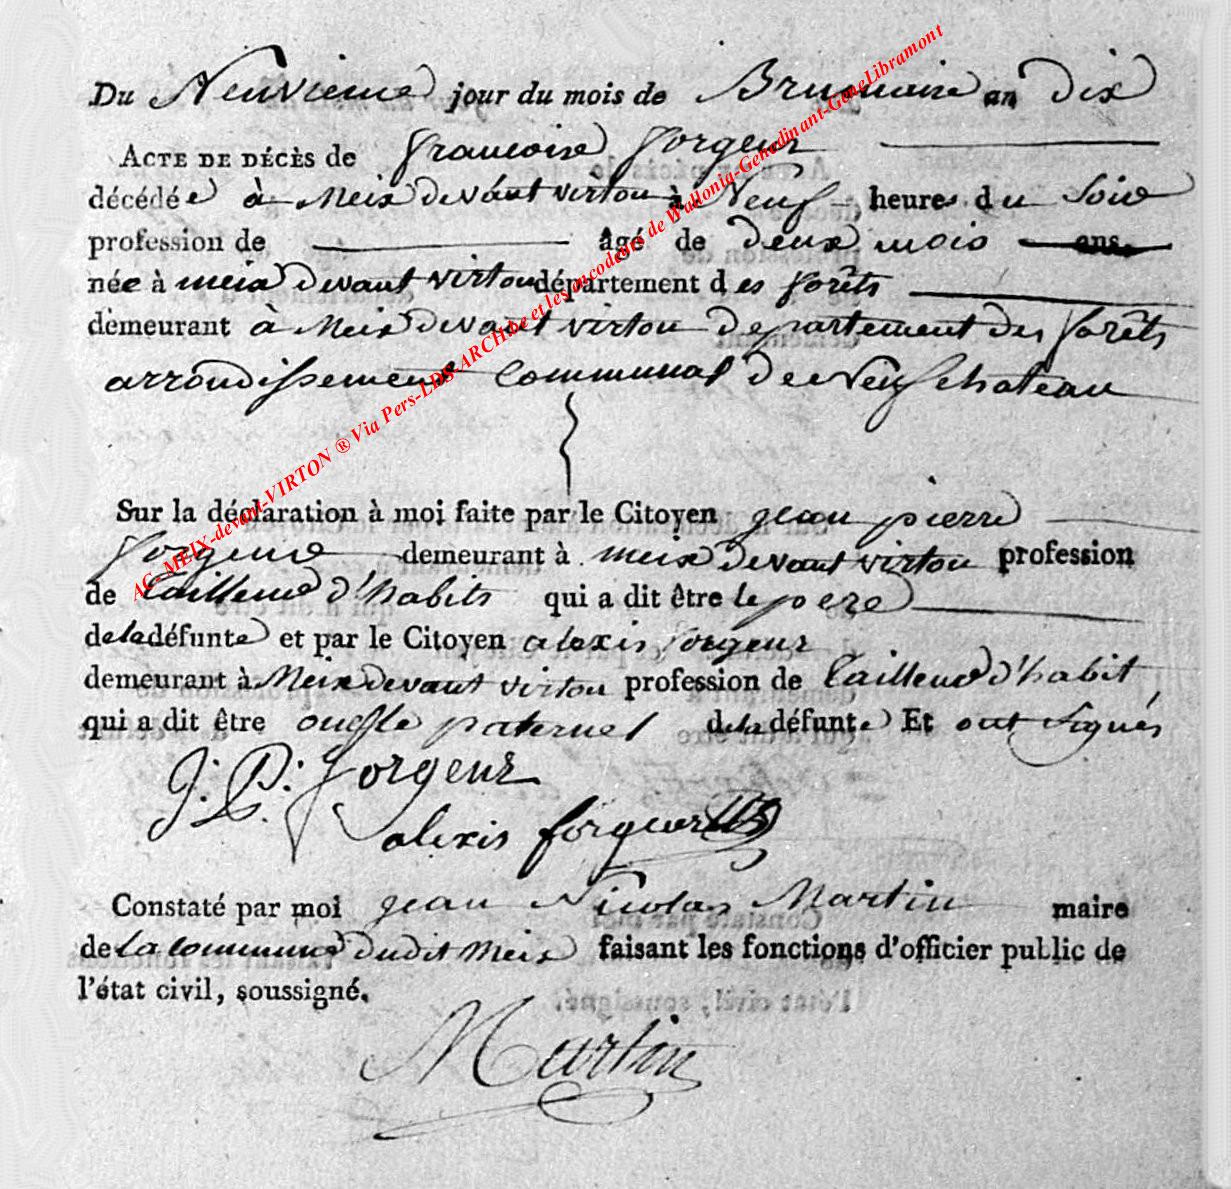 Du Neuvieme jour du mois de Brumaire an dix
ACTE DE DÉCÈS de francoise forgeur
décédée à Meix devant virton à Neuf heures du soir
profession de âgé de deux mois ans.
née à meix devant virton département des forêts
demeurant à Meix devant virton departement des forêts
arrondissement communal de Neufchateau
Sur la déclaration à moi faite par le Citoyen jean pierre
forgeur demeurant à meix devant virton profession
de tailleur d'habits qui a dit être le pere
de la défunte et par le Citoyen alexis forgeur
demeurant à Meix devant virton profession de tailleur d'habit
qui a dit être oncle paternel de la défunte Et ont signés
J: P: forgeur
alexis forgeur
Constaté par moi jean Nicolas Martin maire
de la commune dudit Meix faisant les fonctions d'officier public de
l'état civil, soussigné.
Martin
AC-MEIX-devant-VIRTON ® Via Pers-LDS-ARCH.be et les encodeurs de Wallonia-Genedinant-GeneLibramont